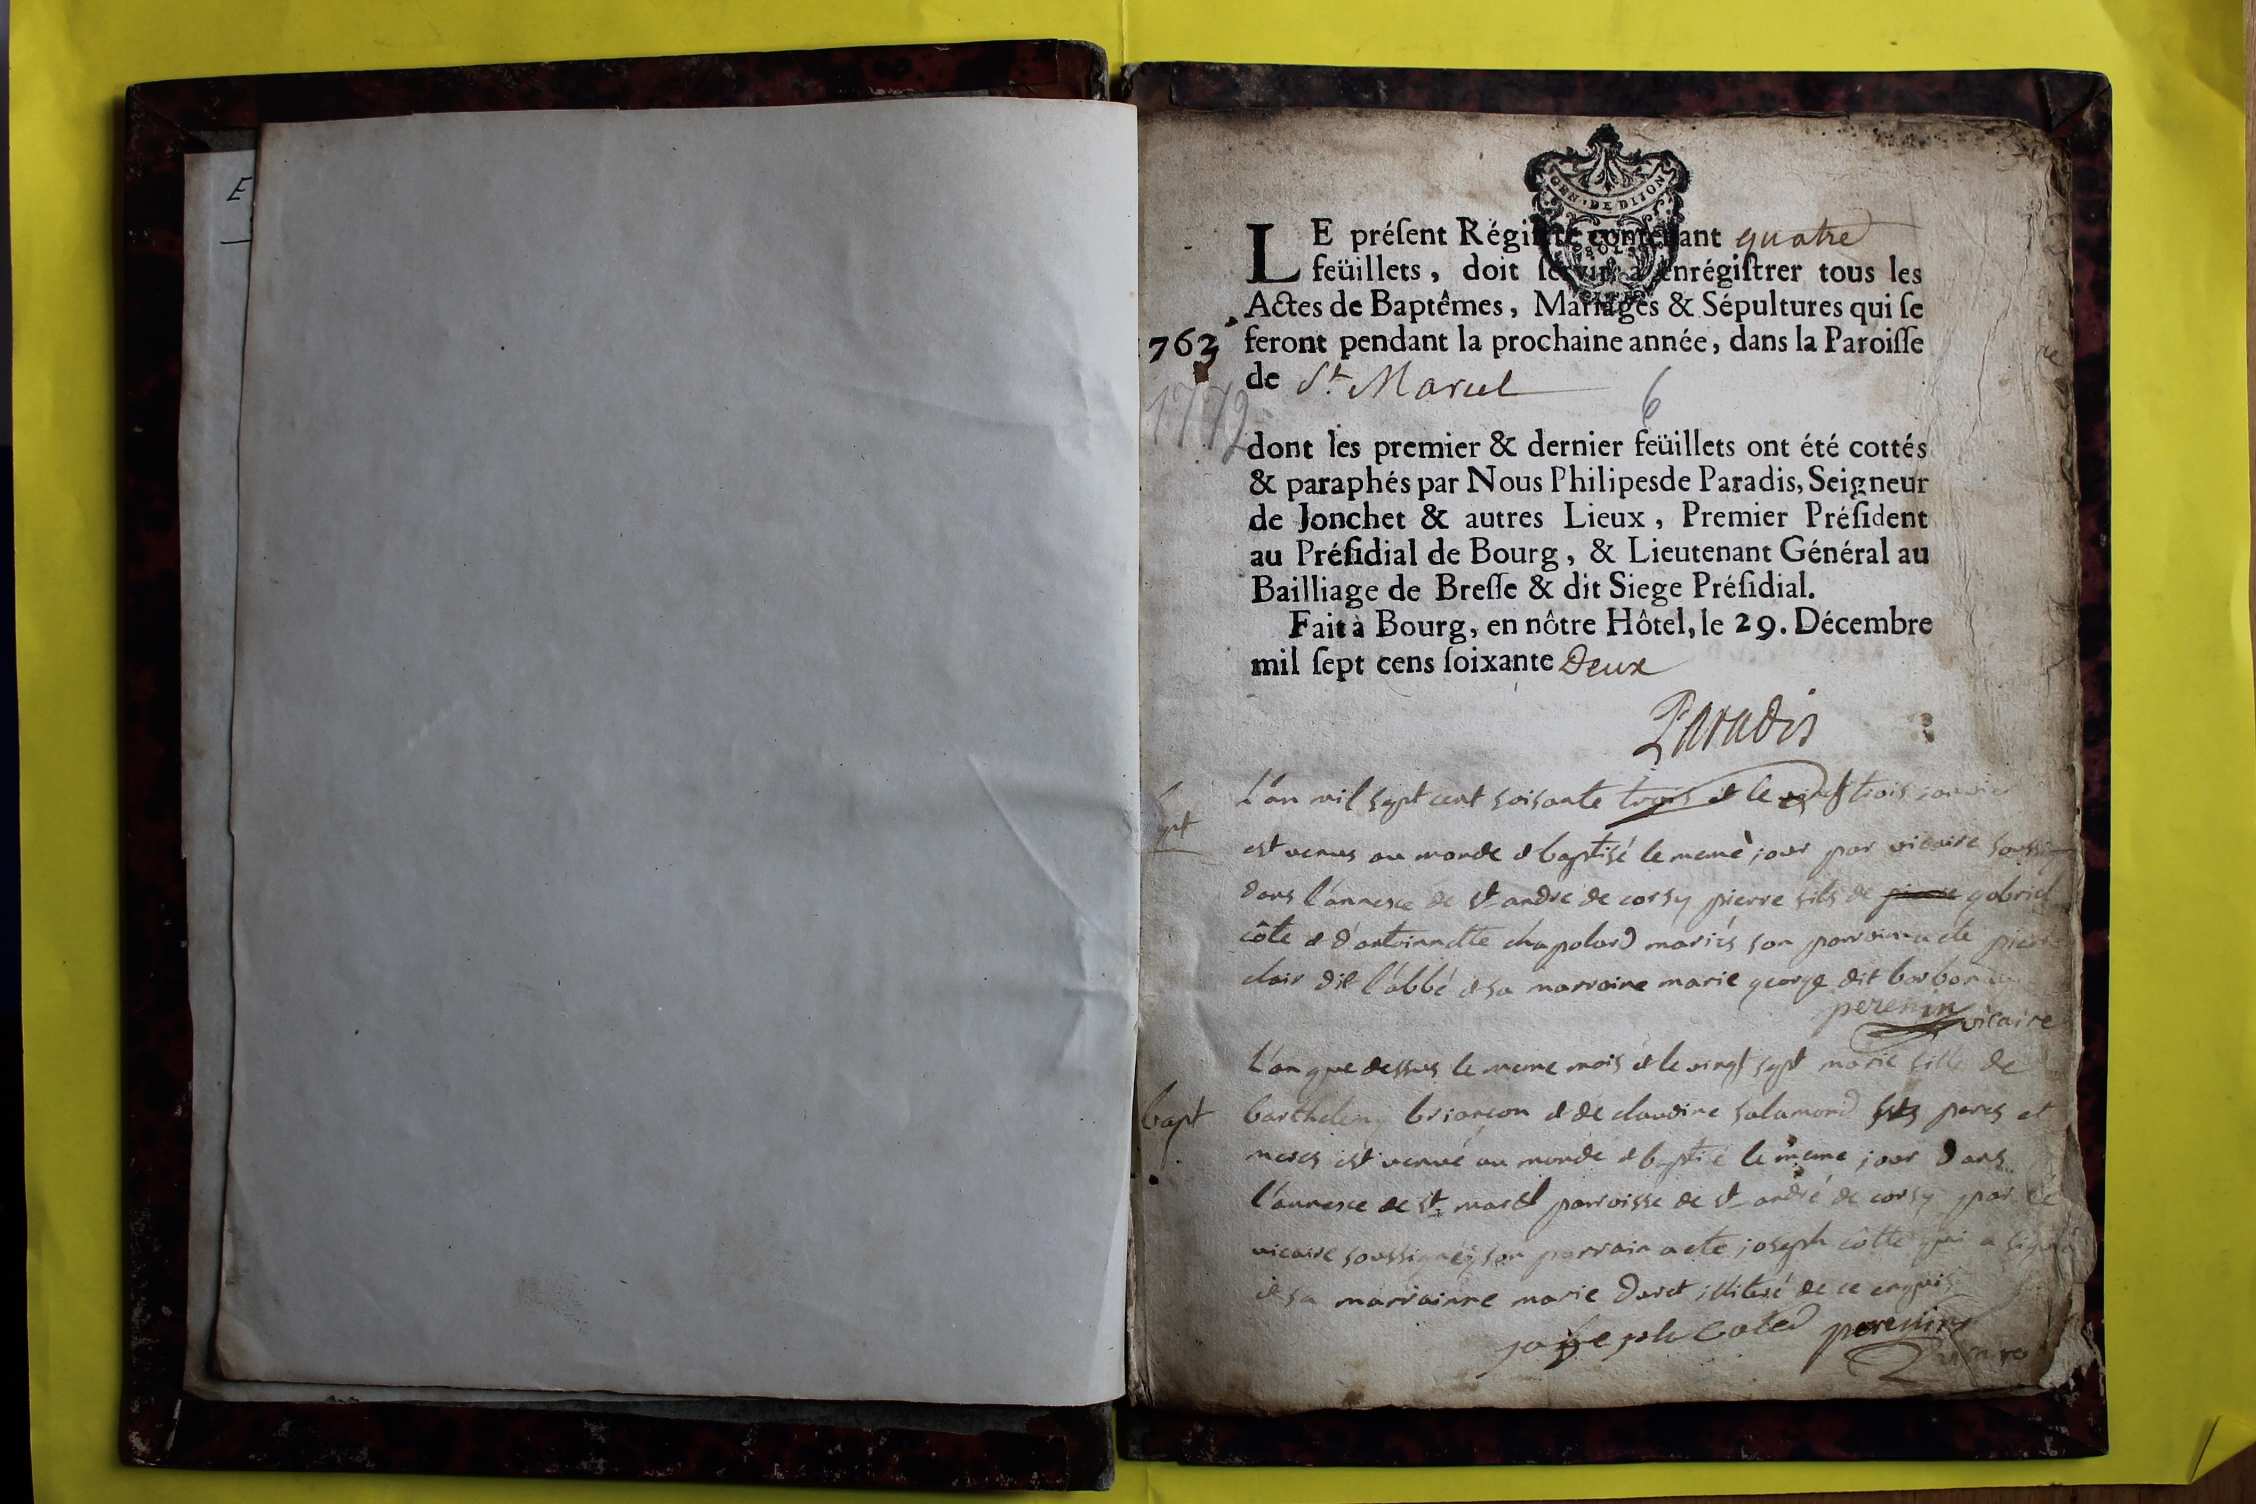 E
GEN · DE DIJON
LE préſent Régiſtre contenant quatre
feüillets, doit ſervir à enrégiſtrer tous les
Actes de Baptêmes, Mariages & Sépultures qui ſe
1763 feront pendant la prochaine année, dans la Paroiſſe
de St. Marcel
1772
6
dont les premier & dernier feüillets ont été cottés
& paraphés par Nous Philipes de Paradis, Seigneur
de Jonchet & autres Lieux, Premier Préſident
au Préſidial de Bourg, & Lieutenant Général au
Bailliage de Breſſe & dit Siege Préſidial.
Fait à Bourg, en nôtre Hôtel, le 29. Décembre
mil ſept cens ſoixante Deux
Paradis
L'an mil sept cent soisante trois et le vingt trois janvier
est venus au monde et baptisé le memè jour par vicaire
dans l'annexe de st andre de corsy pierre fils de pierre gabriel
côte et d'antoinette chapolard mariés son parrain a ete
clair dit l'abbé et sa marraine marie george dit
perenin vicaire
L'an que dessus le meme mois et le vingt sept marie fille de
bapt barthelemy briançon et de claudine salamond ses peres et
meres est venué au monde et baptisé le meme jour dans
l'annexe de st marcel parroisse de st andré de corsy par le
vicaire soussigné son parrain a ete joseph côtte qui a signé
et sa marrainne marie illiteré de ce enquis
josseph Cated perenin
vicaire